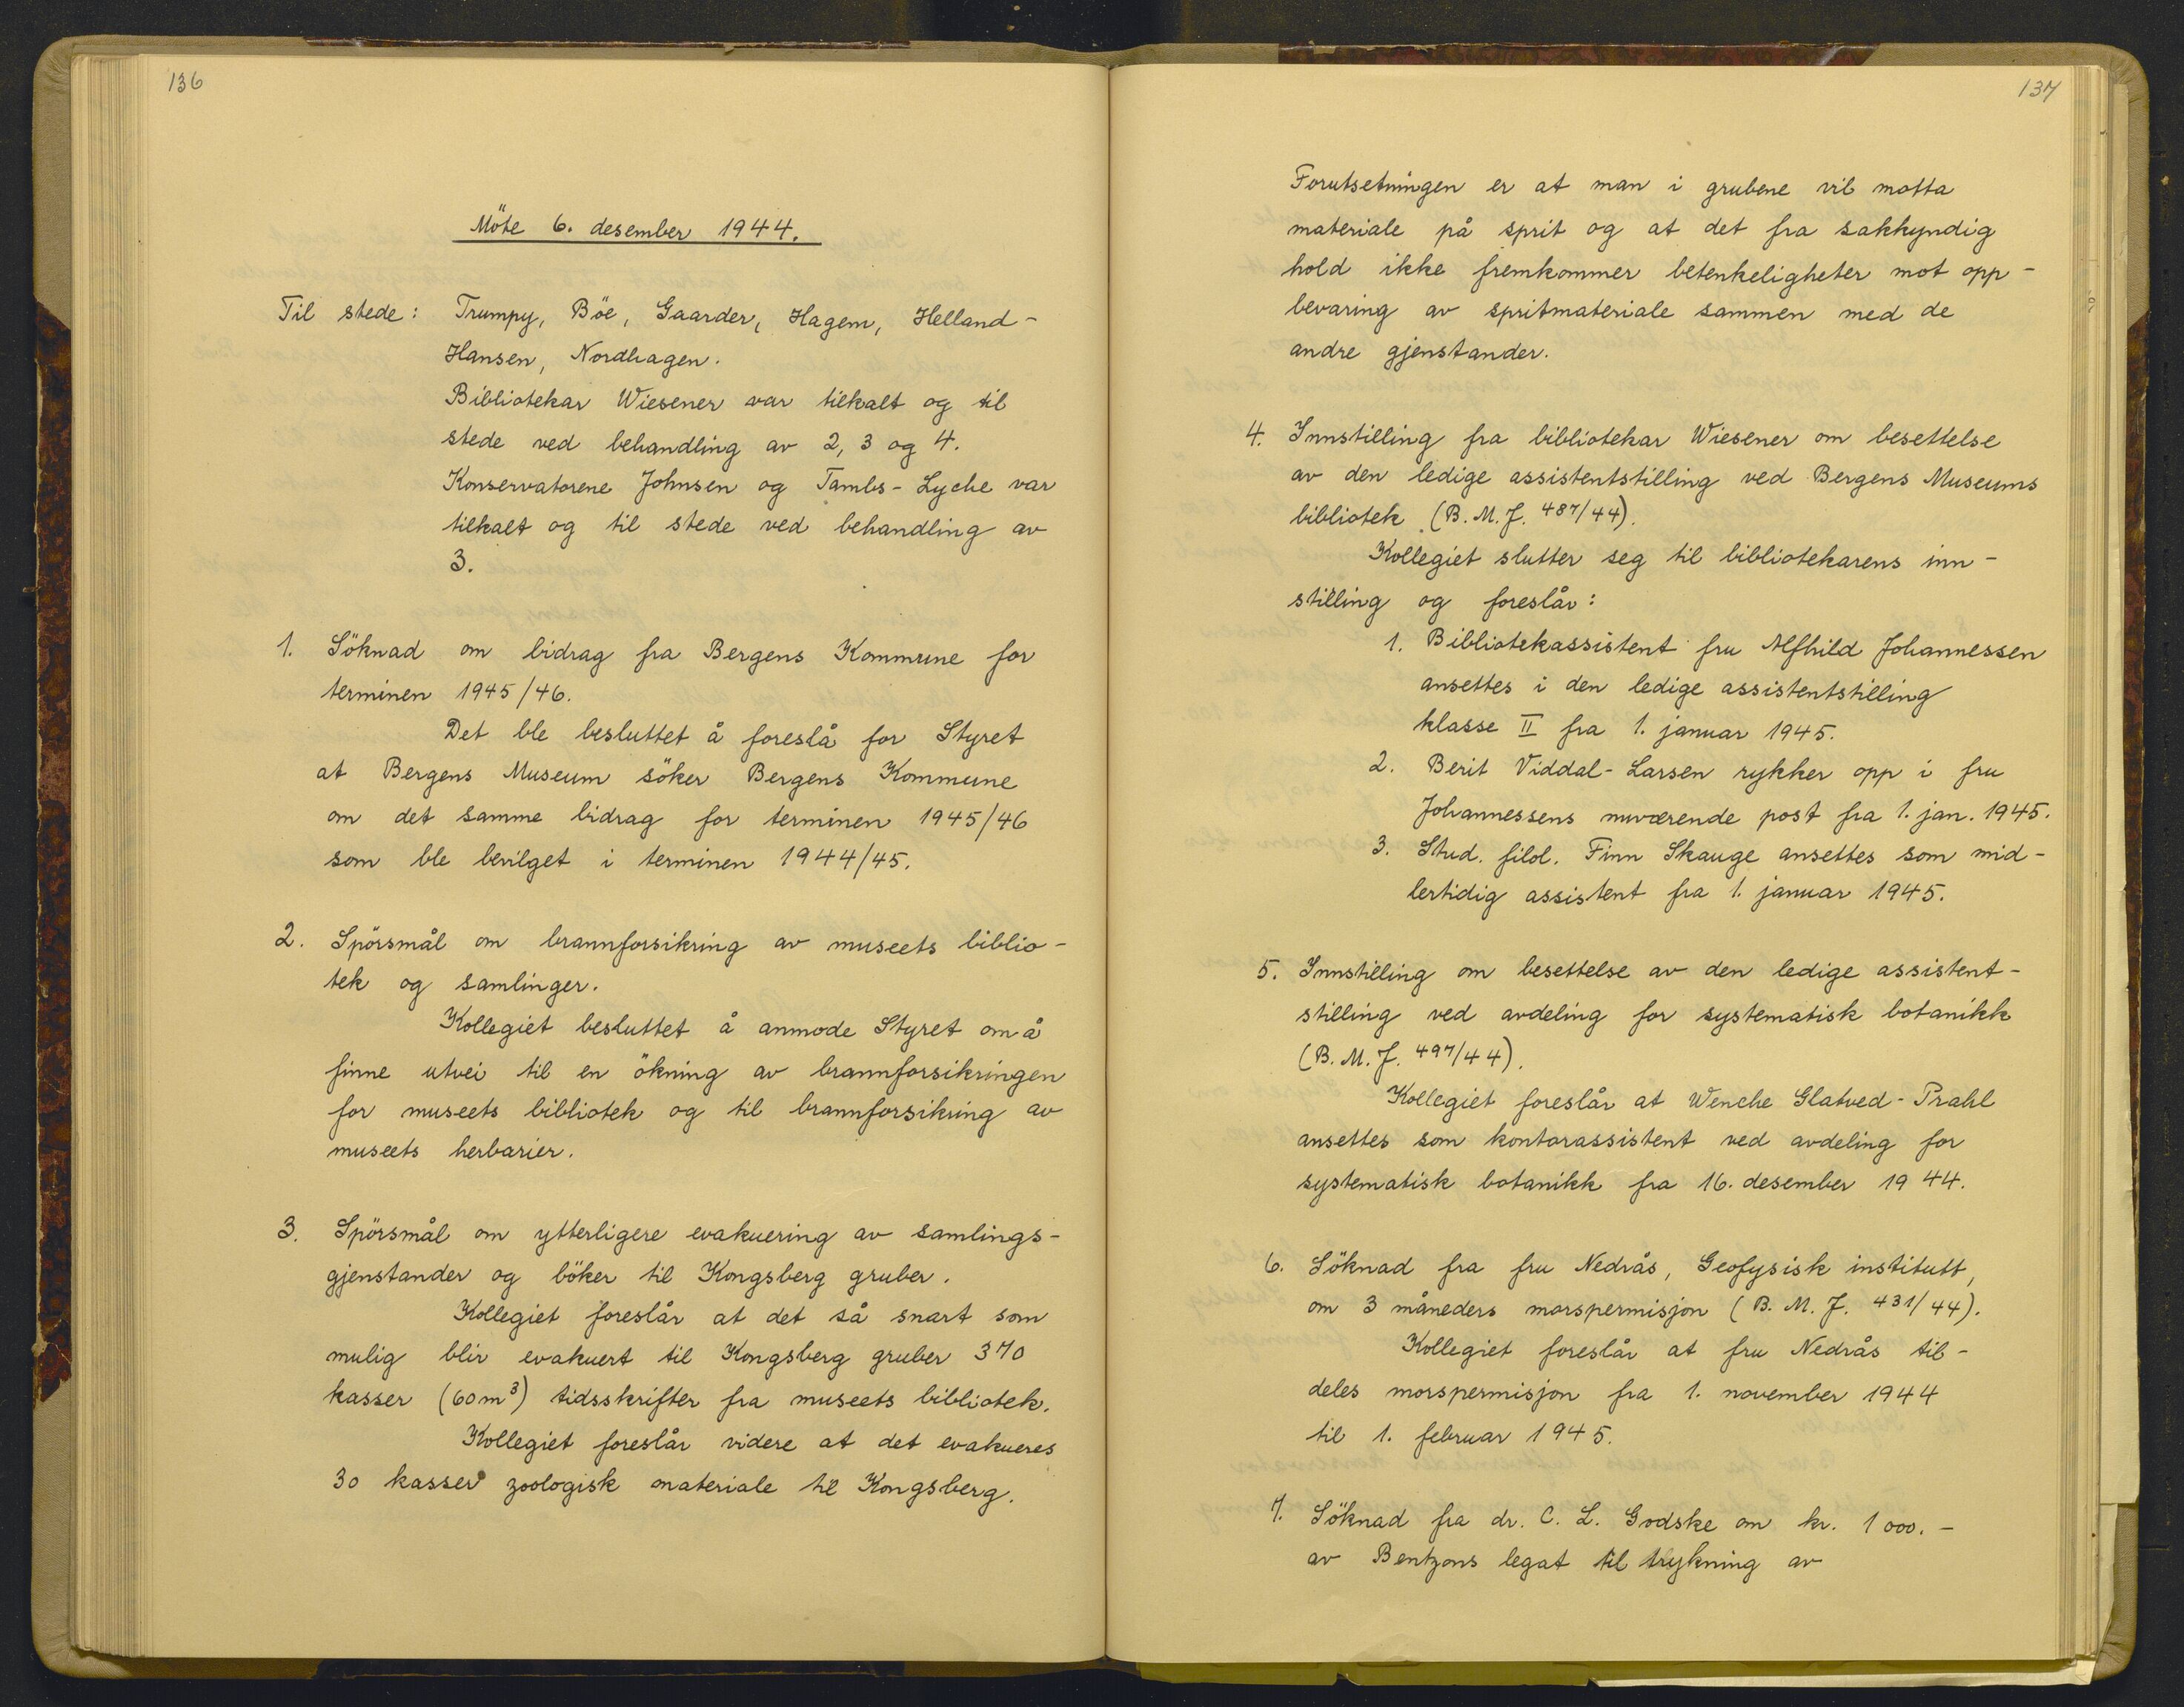 136
Möte 6. desember 1944.
Til stede: Trumpy, Böe, Gaarder, Hagem, Helland-
Hansen, Nordhagen.
Bibliotekar Wiesener var tilkalt og til
stede ved behandling av 2, 3 og 4.
Konservatorene Johnsen og Tambs-Lyche var
tilkalt og til stede ved behandling av
3.
1. Söknad om bidrag fra Bergens Kommune for
terminen 1945/46.
Det ble besluttet å foreslå for Styret
at Bergens Museum söker Bergens Kommune
om det samme bidrag for terminen 1945/46
som ble bevilget i terminen 1944/45.
2. Spörsmål om brannforsikring av museets biblio-
tek og samlinger.
Kollegiet besluttet å anmode Styret om å
finne utvei til en ökning av brannforsikringen
for museets bibliotek og til brannforsikring av
museets herbarier.
3. Spörsmål om ytterligere evakuering av samlings-
gjenstander og böker til Kongsberg gruber.
Kollegiet foreslår at det så snart som
mulig blir evakuert til Kongsberg gruber 370
kasser (60 m³) tidsskrifter fra museets bibliotek.
Kollegiet foreslår videre at det evakueres
30 kasser zoologisk materiale til Kongsberg.
137
Forutsetningen er at man i grubene vil motta
materiale på sprit og at det fra sakkyndig
hold ikke fremkommer betenkeligheter mot opp-
bevaring av spritmateriale sammen med de
andre gjenstander.
4. Innstilling fra bibliotekar Wiesener om besettelse
av den ledige assistentstilling ved Bergens Museums
bibliotek (B. M. J. 487/44).
Kollegiet slutter seg til bibliotekarens inn-
stilling og foreslår:
1. Bibliotekassistent fru Alfhild Johannessen
ansettes i den ledige assistentstilling
klasse II fra 1. januar 1945.
2. Berit Viddal-Larsen rykker opp i fru
Johannessens nuværende post fra 1. jan. 1945.
3. Stud. filol. Finn Skauge ansettes som mid-
lertidig assistent fra 1. januar 1945.
5. Innstilling om besettelse av den ledige assistent-
stilling ved avdeling for systematisk botanikk
(B. M. J. 497/44).
Kollegiet foreslår at Wenche Glatved-Prahl
ansettes som kontorassistent ved avdeling for
systematisk botanikk fra 16. desember 1944.
6. Söknad fra fru Nedrås, Geofysisk institutt,
om 3 måneders morspermisjon (B. M. J. 431/44).
Kollegiet foreslår at fru Nedrås til-
deles morspermisjon fra 1. november 1944
til 1. februar 1945.
7. Söknad fra dr. C. L. Godske om kr. 1000.-
av Bentzons legat til trykning av